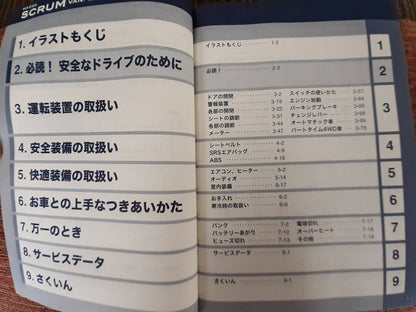 MAZDA
SCRUM VAN
1. イラストもくじ
2. 必読！ 安全なドライブのために
3. 運転装置の取扱い
4. 安全装備の取扱い
5. 快適装備の取扱い
6. お車との上手なつきあいかた
7. 万一のとき
8. サービスデータ
9. さくいん
イラストもくじ 1-2
1
必読！ 2-2
2
ドアの開閉 3-2
警報装置 3-19
各部の開閉 3-22
シートの調節 3-31
各部の調節 3-44
メーター 3-47
スイッチの使いかた 3-57
エンジン始動 3-64
パーキングブレーキ 3-66
チェンジレバー 3-68
オートマチック車
パートタイム4WD車 3-79
3
シートベルト 4-2
SRSエアバッグ 4-9
ABS 4-16
4
エアコン、ヒーター 5-2
オーディオ 5-14
室内装備 5-17
5
お手入れ 6-2
寒冷時の取扱い 6-9
6
パンク 7-2
バッテリーあがり 7-10
ヒューズ切れ 7-13
電球切れ 7-17
オーバーヒート
その他
7
サービスデータ 8-1
8
さくいん 9-1
9